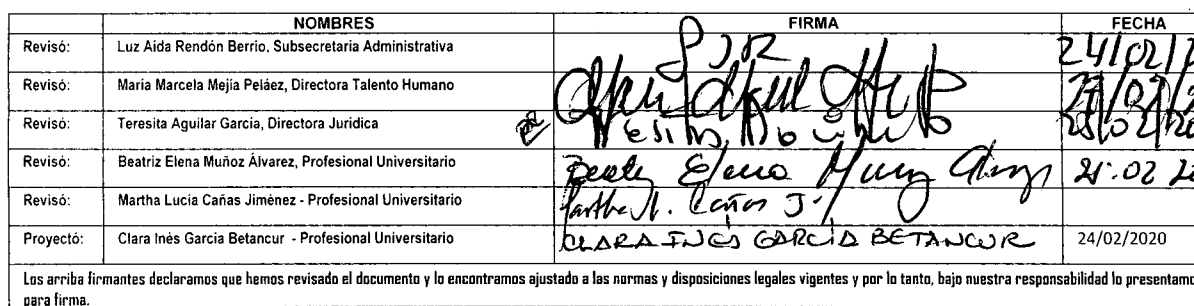 NOMBRES FIRMA FECHA
Revisó: Luz Aida Rendón Berrio, Subsecretaria Administrativa 24/02/
Revisó: María Marcela Mejía Peláez, Directora Talento Humano
Revisó: Teresita Aguilar García, Directora Jurídica
Revisó: Beatriz Elena Muñoz Álvarez, Profesional Universitario Elena
Revisó: Martha Lucía Cañas Jiménez - Profesional Universitario Martha L. Cañas J.
Proyectó: Clara Inés García Betancur - Profesional Universitario CLARA INÉS GARCÍA BETANCUR 24/02/2020
Los arriba firmantes declaramos que hemos revisado el documento y lo encontramos ajustado a las normas y disposiciones legales vigentes y por lo tanto, bajo nuestra responsabilidad lo presentamo
para firma.